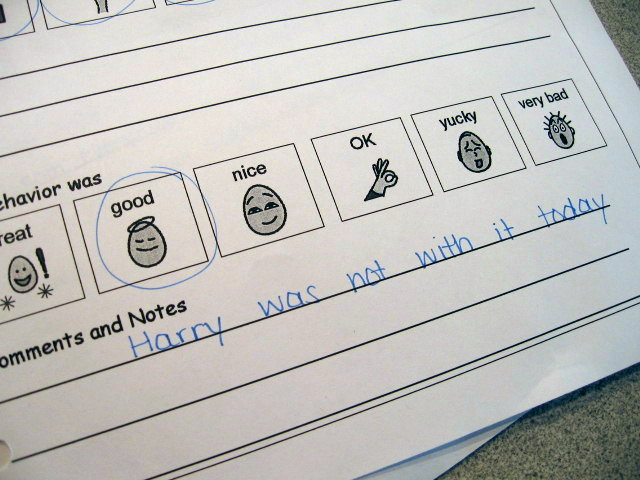 ehavior was
reat good nice OK yucky very bad
omments and Notes
Harry was not with it today